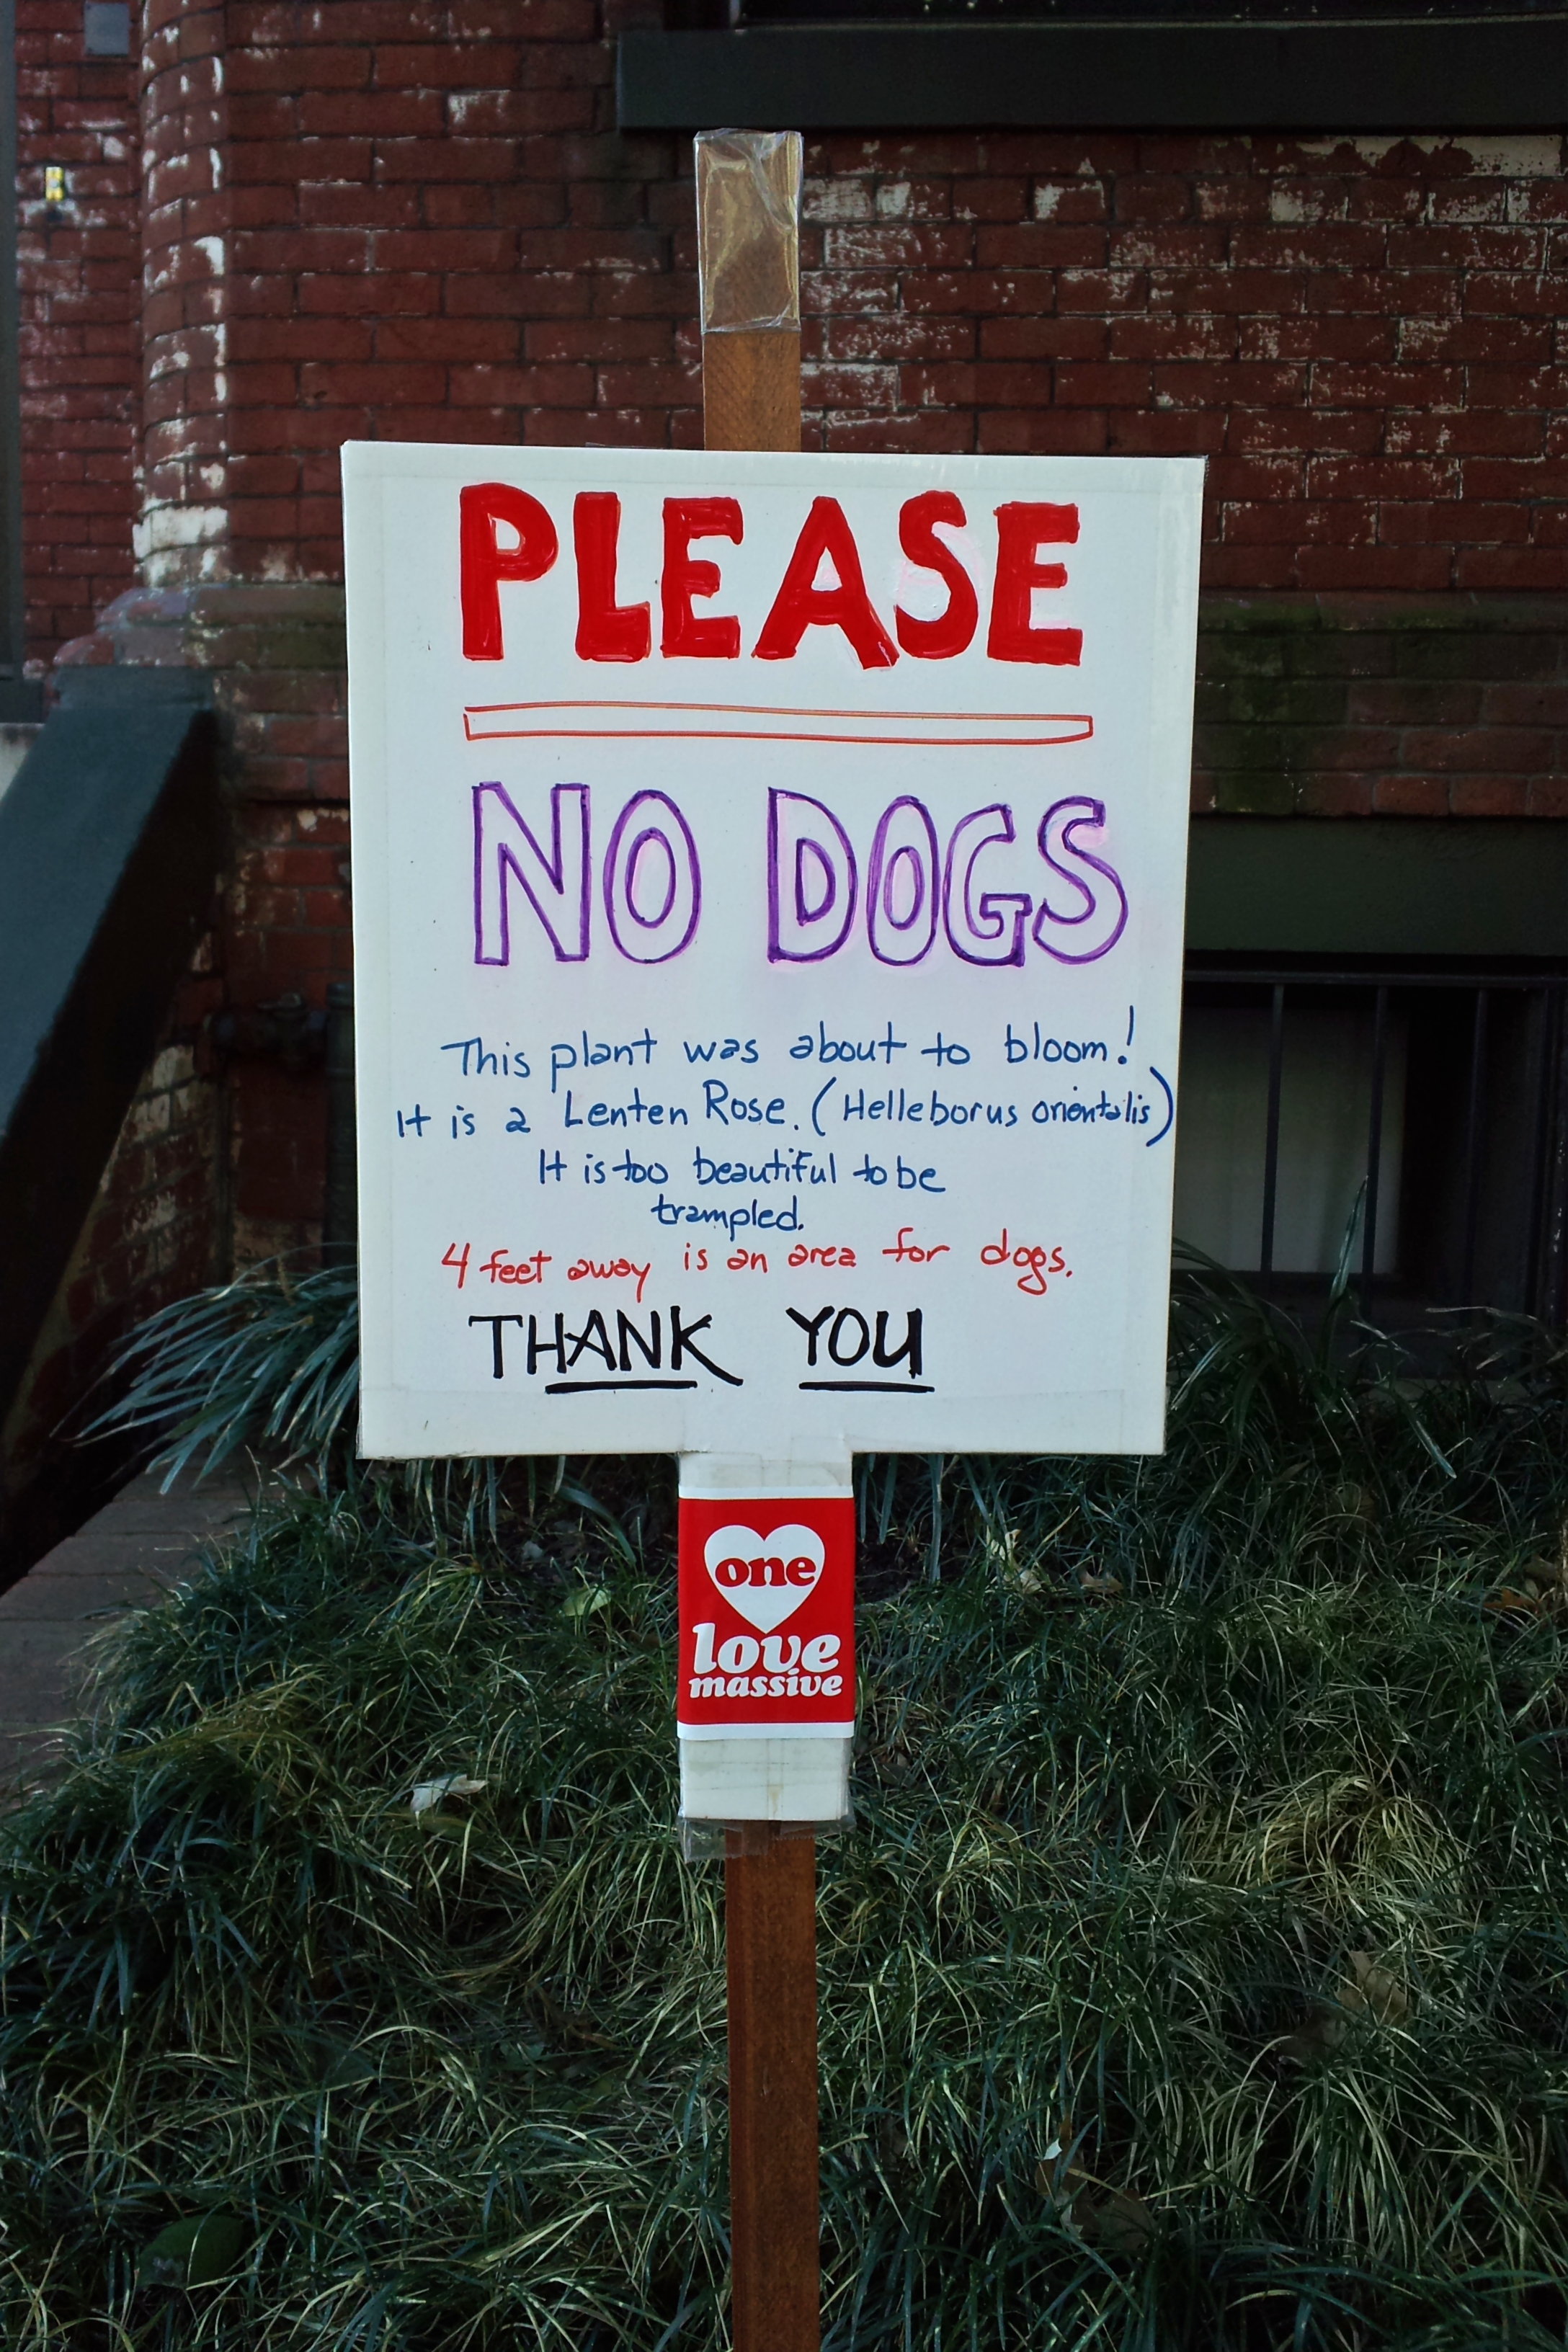 PLEASE
NO DOGS
This plant was about to bloom!
It is a Lenten Rose. (Helleborus orientalis)
It is too beautiful to be
trampled.
4 feet away is an area for dogs.
THANK YOU
one
love
massive